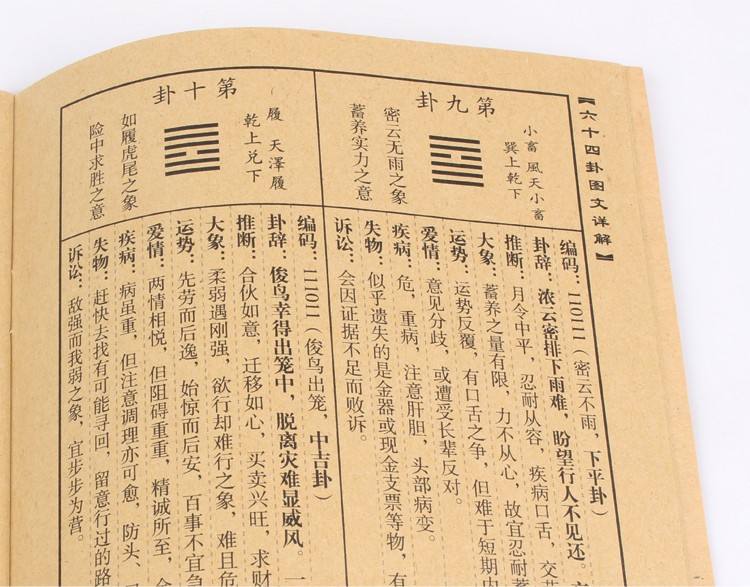 【六十四卦图文详解】
第九卦
小畜 風天小畜
巽上乾下
密云无雨之象
蓄养实力之意
编码：110111（密云不雨，下平卦）
卦辞：浓云密排下雨难，盼望行人不见还。
推断：月令中平，忍耐从容，疾病口舌，交
大象：蓄养之量有限，力不从心，故宜忍耐蓄
运势：运势反覆，有口舌之争，但难于短期内
爱情：意见分歧，或遭受长辈反对。
疾病：危，重病，注意肝胆，头部病变。
失物：似乎遗失的是金器或现金支票等物，有
诉讼：会因证据不足而败诉。
第十卦
履 天澤履
乾上兑下
如履虎尾之象
险中求胜之意
编码：111011（俊鸟出笼，中吉卦）
卦辞：俊鸟幸得出笼中，脱离灾难显威风。一
推断：合伙如意，迁移如心，买卖兴旺，求财
大象：柔弱遇刚强，欲行却难行之象，难且危
运势：先劳而后逸，始惊而后安，百事不宜急
爱情：两情相悦，但阻碍重重，精诚所至，金
疾病：病虽重，但注意调理亦可愈，防头、
失物：赶快去找有可能寻回，留意行过的路
诉讼：敌强而我弱之象，宜步步为营。